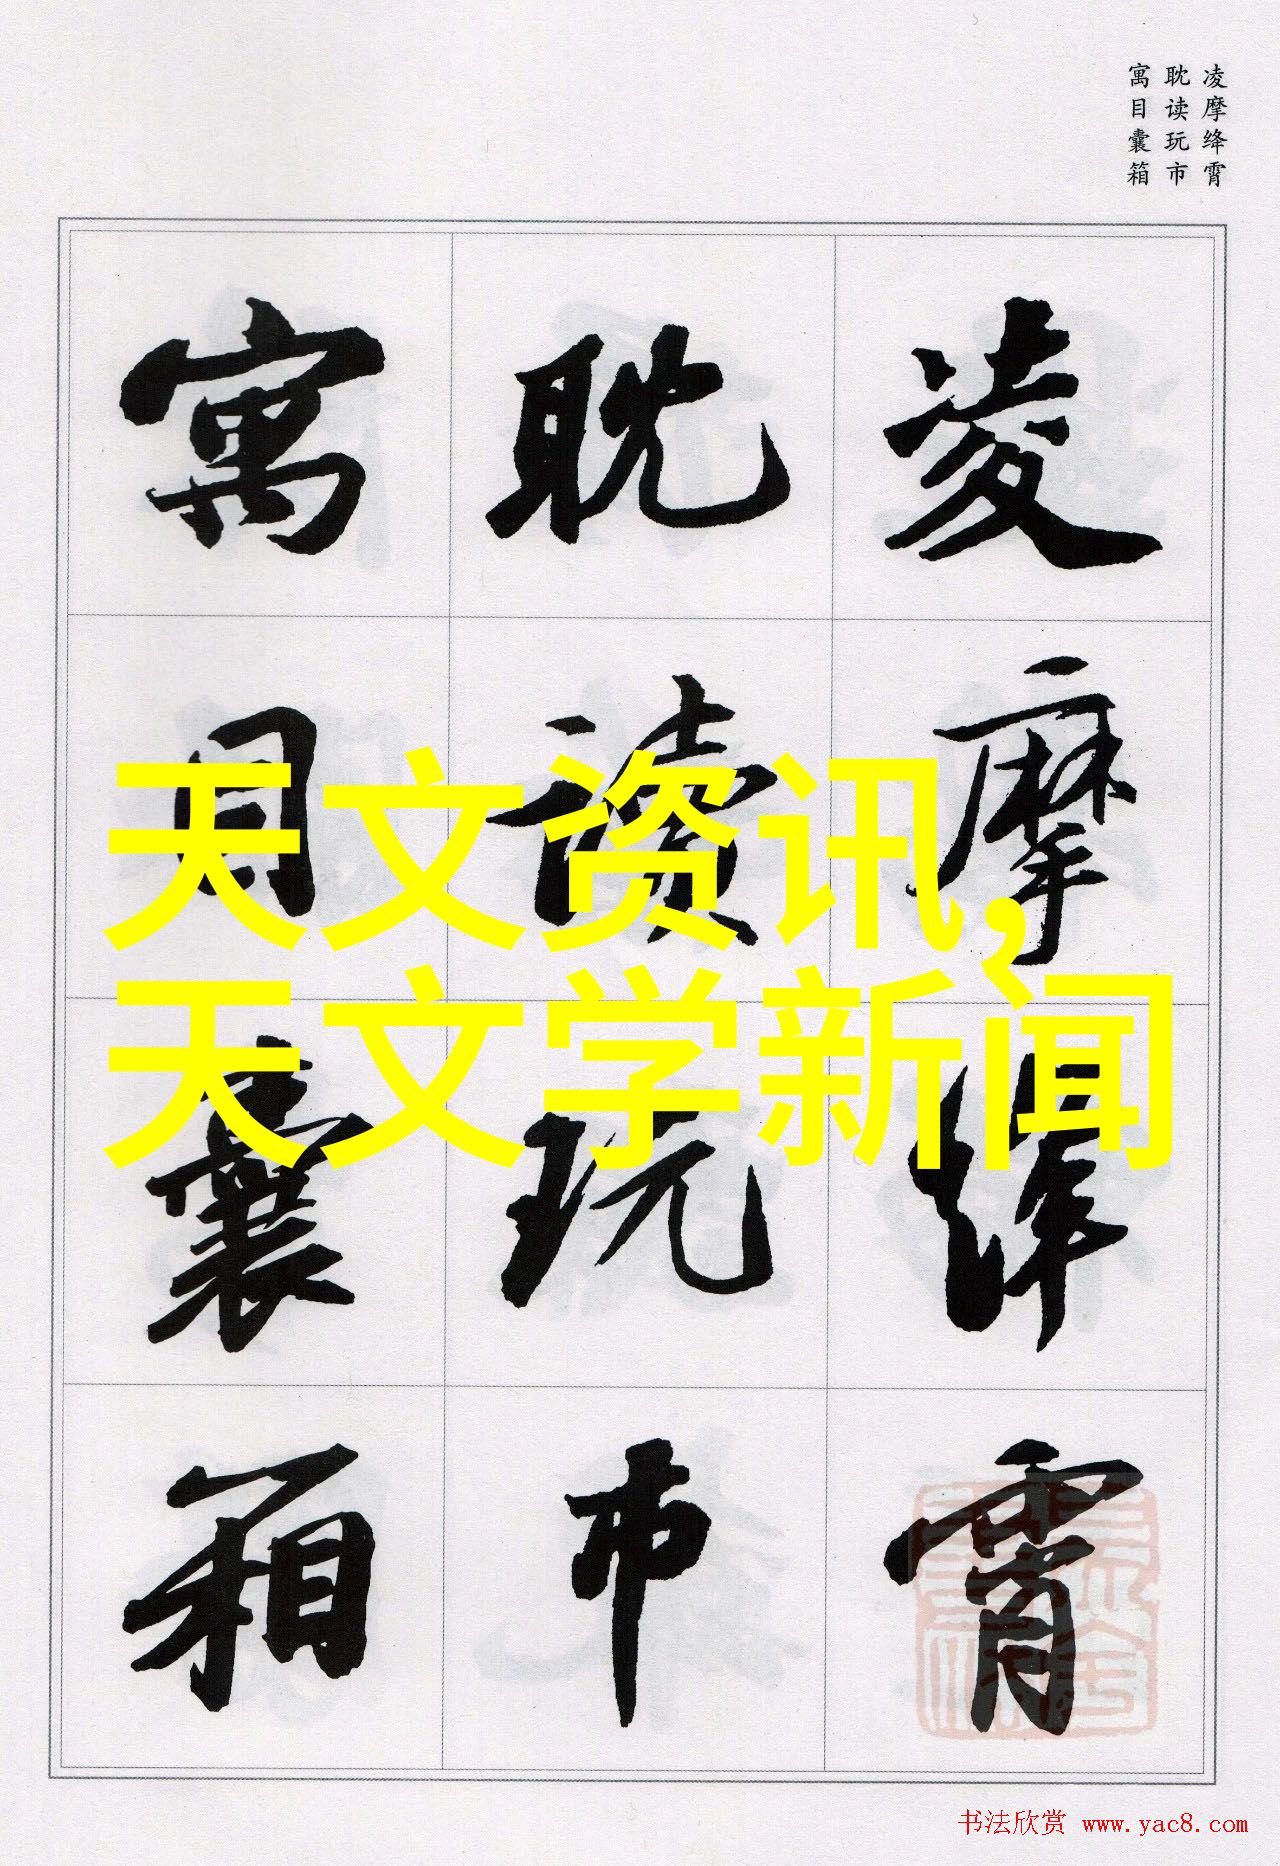 凌摩绛霄
耽读玩市
寓目囊箱
凌摩绛霄
耽读玩市
寓目囊箱
天文资讯,
天文学新闻
书法欣赏 www.yac8.com